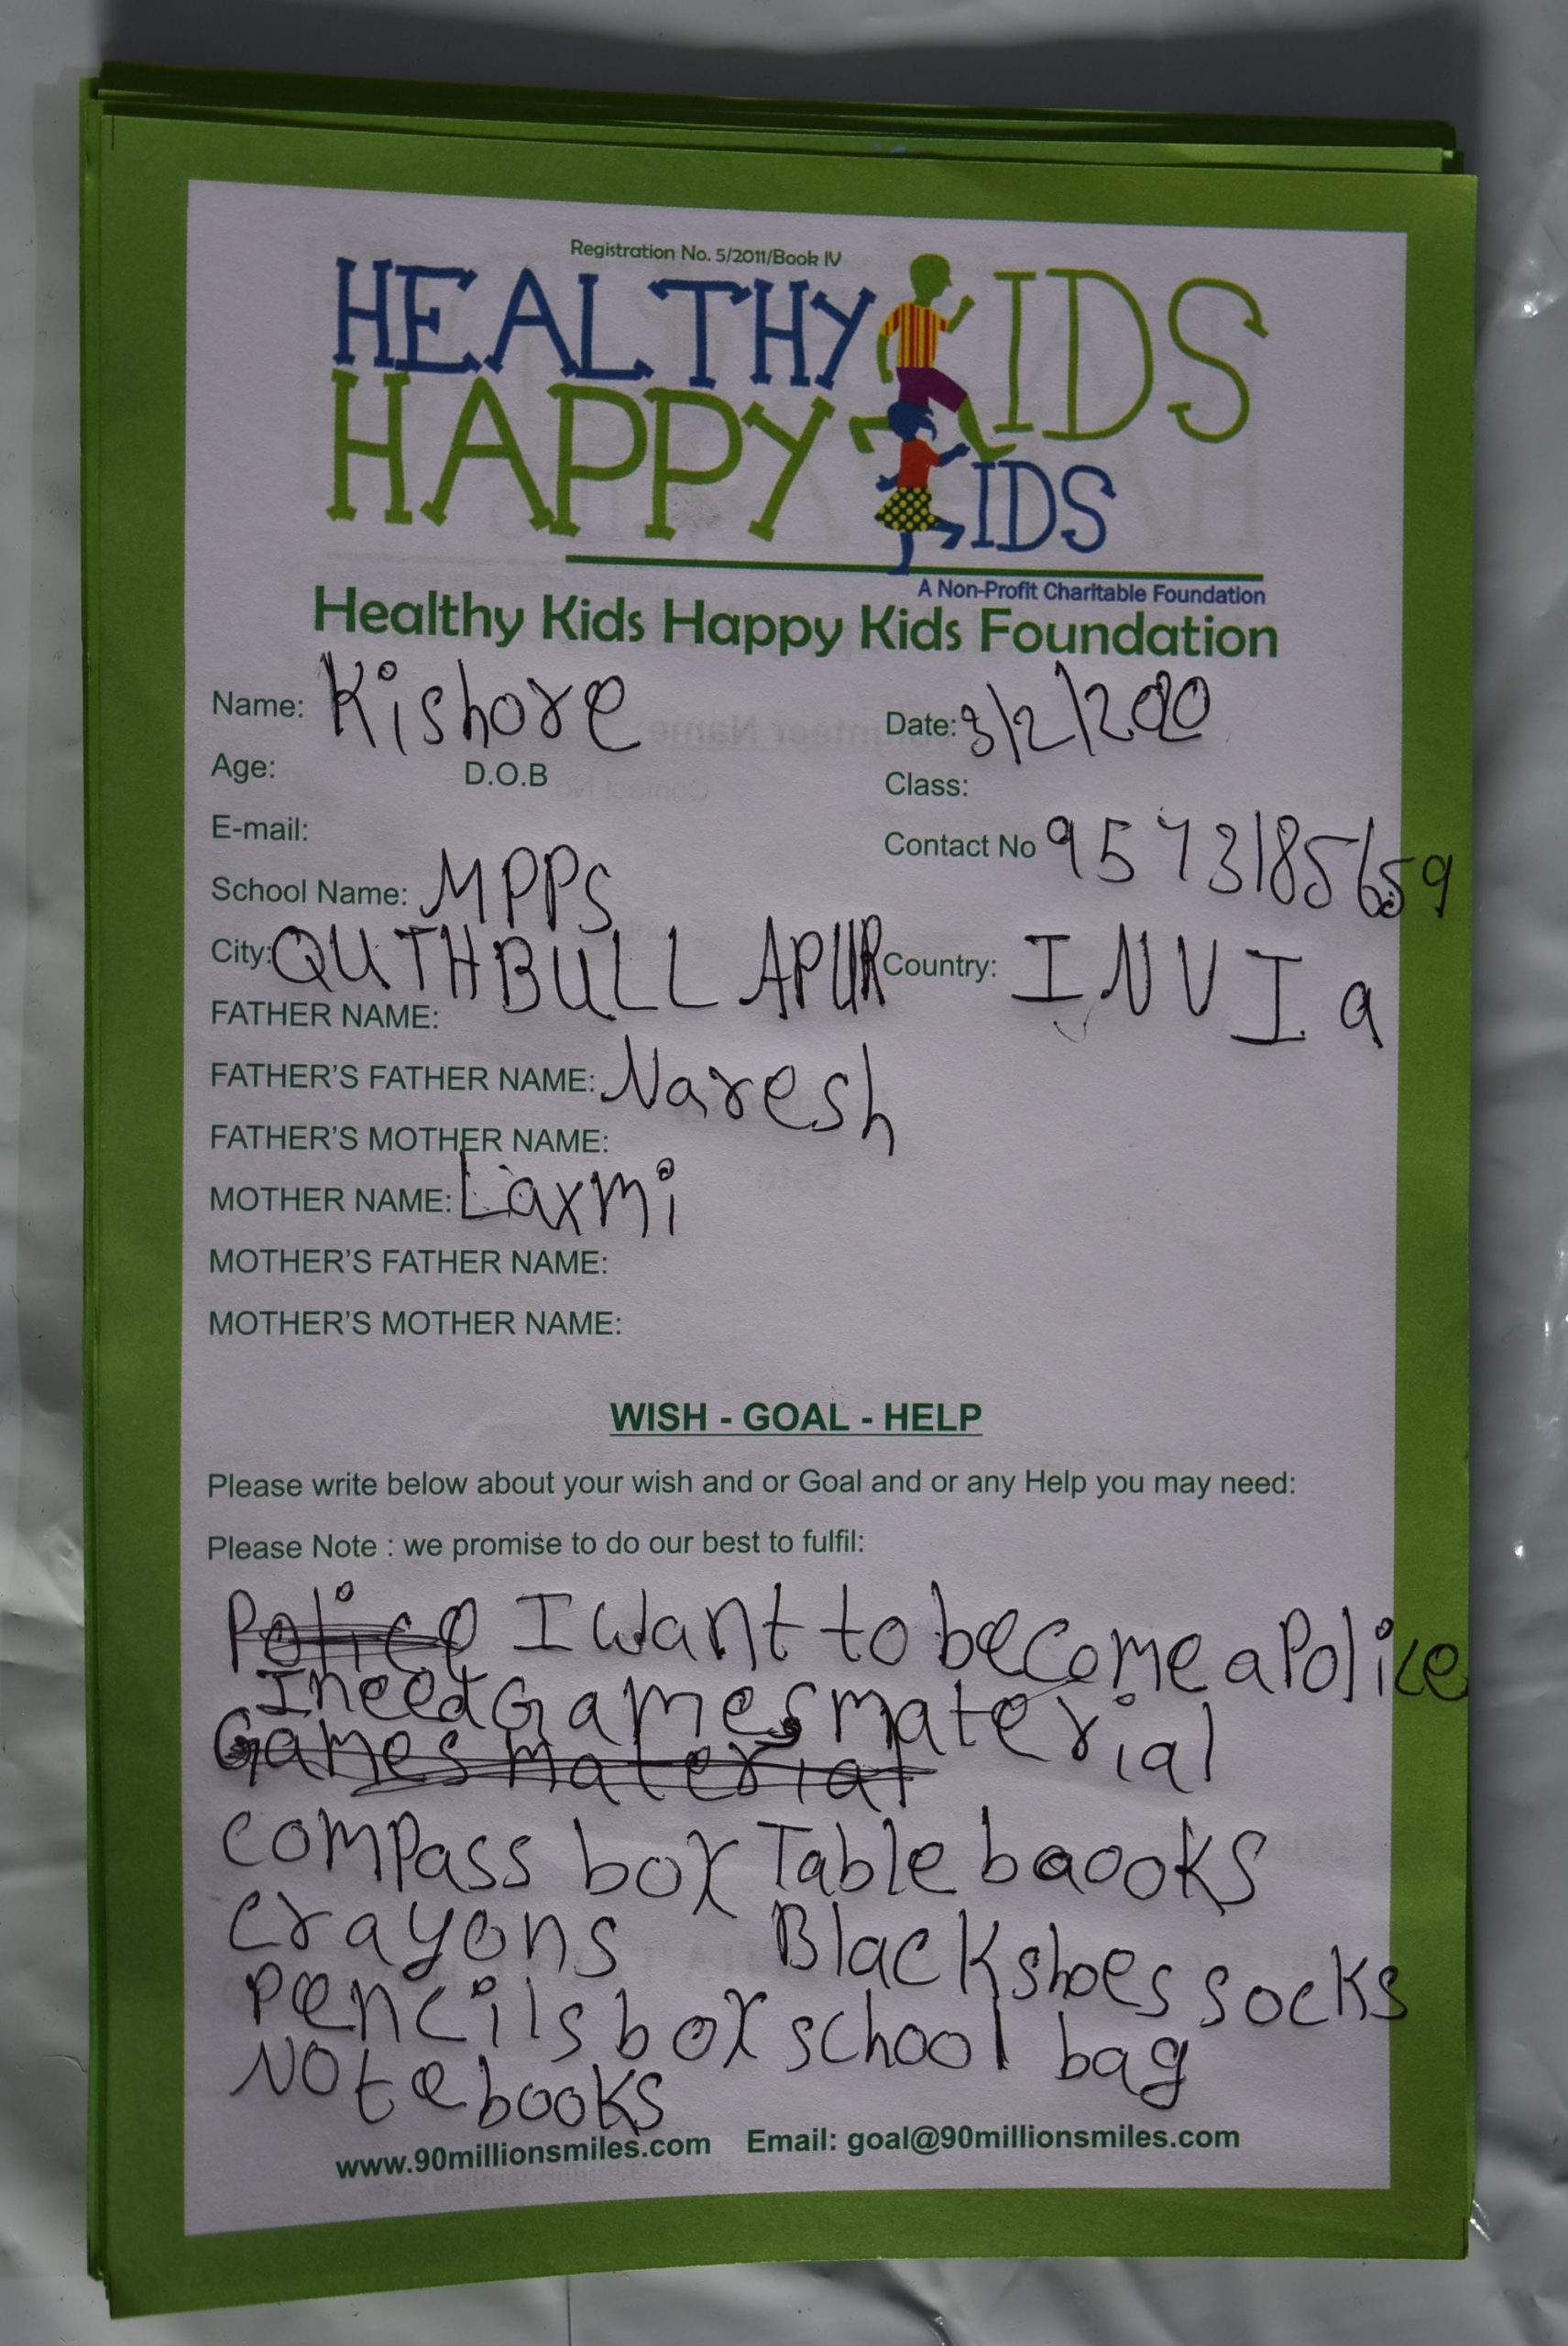 Registration No. 5/2011/Book IV
HEALTHY KIDS
HAPPY KIDS
A Non-Profit Charitable Foundation
Healthy Kids Happy Kids Foundation
Name: Kishore Date: 3/2/2020
Age: D.O.B Class:
E-mail: Contact No 9573185659
School Name: MPPS
City: QUTHBULLAPUR Country: INVIa
FATHER NAME:
FATHER'S FATHER NAME: Naresh
FATHER'S MOTHER NAME:
MOTHER NAME: Laxmi
MOTHER'S FATHER NAME:
MOTHER'S MOTHER NAME:
WISH - GOAL - HELP
Please write below about your wish and or Goal and or any Help you may need:
Please Note : we promise to do our best to fulfil:
Police I want to become a Police
I need Games material
Games material
Compass box Table baooks
Crayons Black shoes socks
Pencils box school bag
Note books
www.90millionsmiles.com Email: goal@90millionsmiles.com